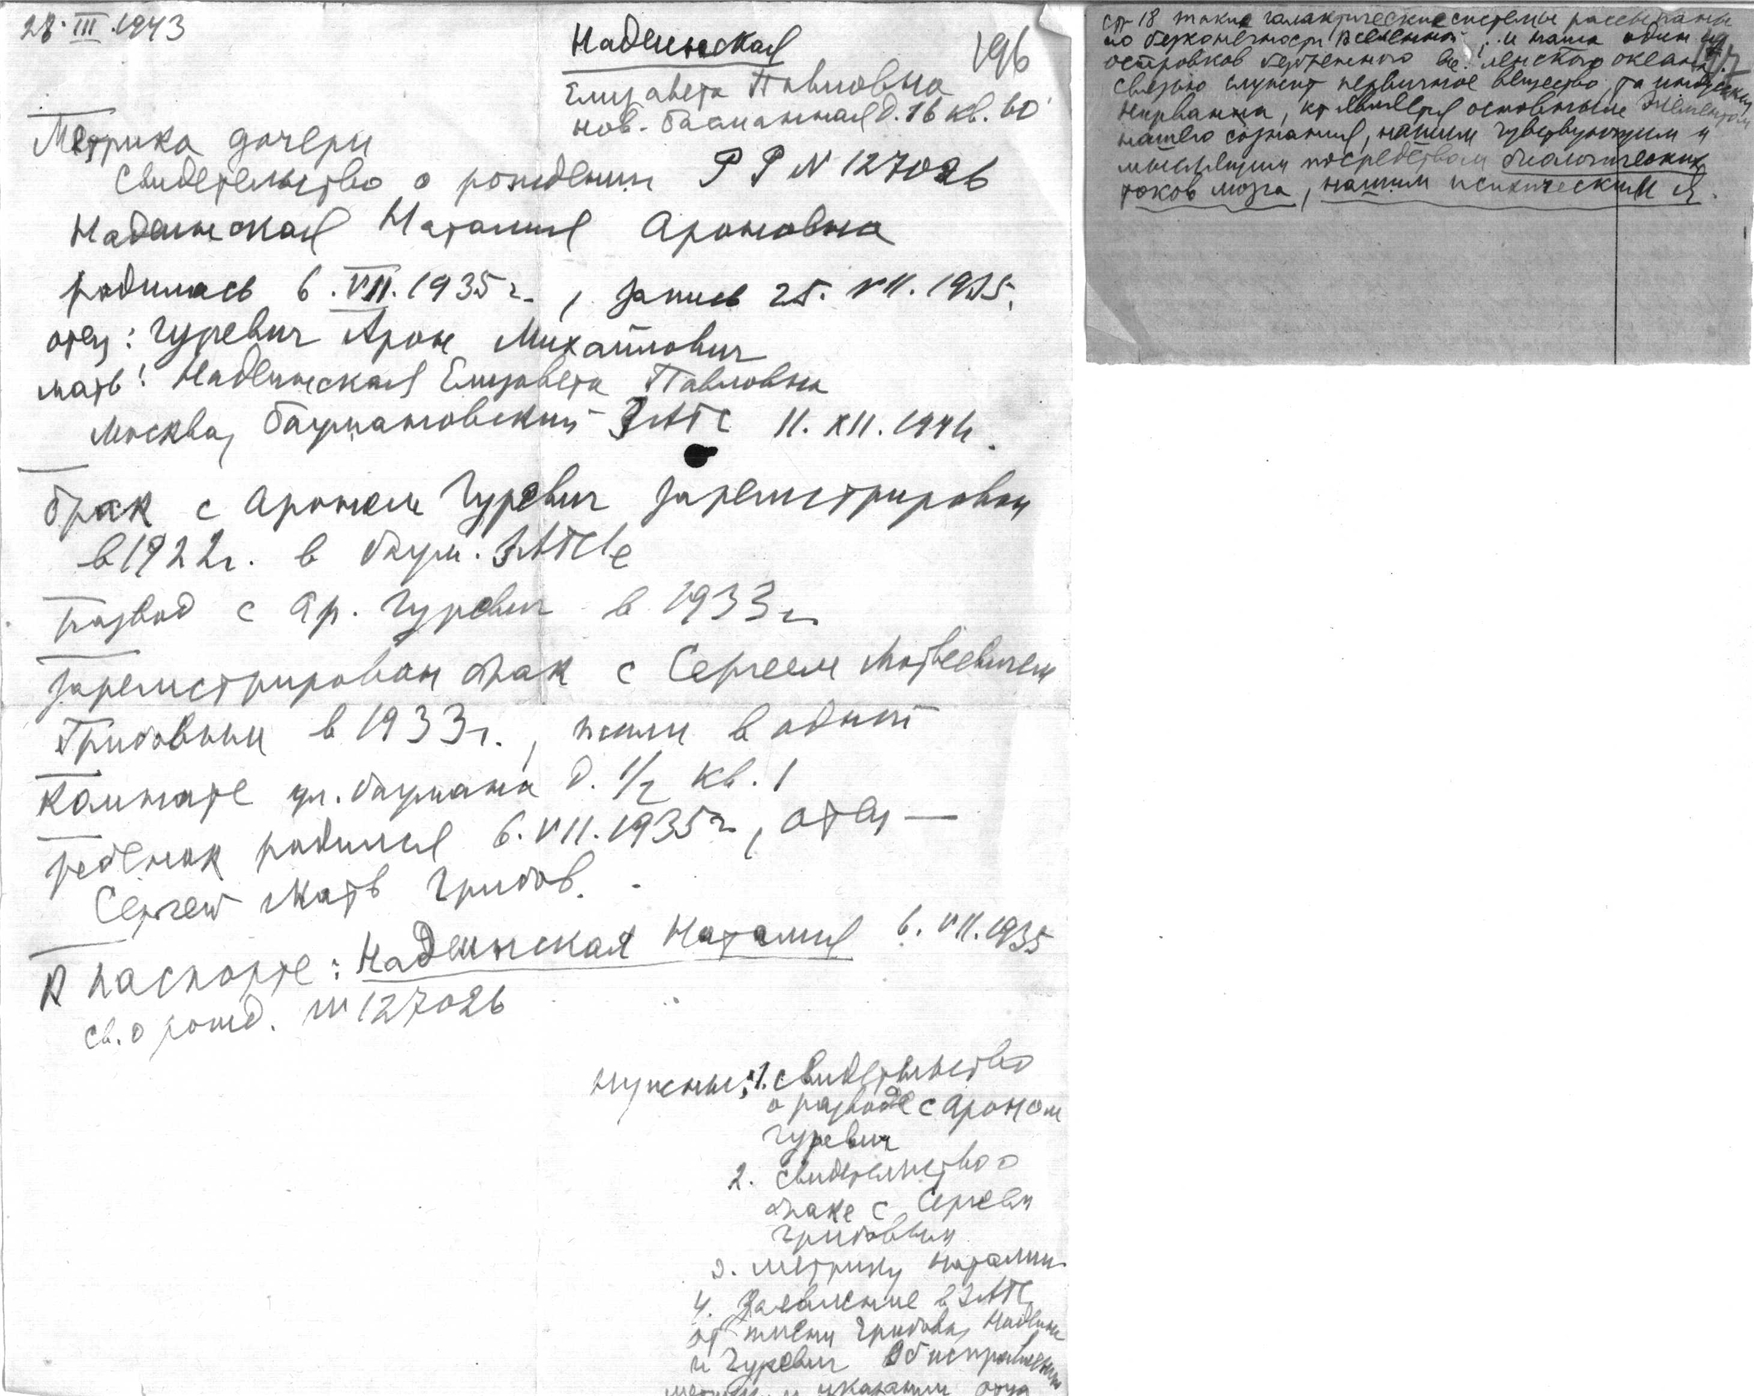 28.III.1943
Надеинская
196
Елизавета Павловна
Нов-Басманная д.16 кв.60
Метрика дочери
свидетельство о рождении РР N 127026
Надеинская Наталия Ароновна
родилась 6.VII.1935г., запись 25.VII.1935.
отец: Гуревич Арон Михайлович
мать: Надеинская Елизавета Павловна
Москва, Баумановский ЗАГС 11.XII.1941.
брак с Ароном Гуревич зарегистрирован
в 1922г. в Баум. ЗАГСе
Развод с Ар. Гуревич в 1933г
Зарегистрирован брак с Сергеем Матвеевичем
Грибовым в 1933г., жили в одной
комнате ул. Баумана д. 1/2 кв. 1
ребенок родился 6.VII.1935г, отец —
Сергей Матв Грибов.
В паспорте: Надеинская Наталия 6.VII.1935
св. о рожд. № 127026
Нужны: 1. свидетельство
о разводе с Ароном
Гуревич
2. свидетельство о
браке с Сергеем
Грибовым
3. метрику Наталии
4. Заявление в ЗАГС
от имени Грибова, Надеин
и Гуревич об исправлении
метрики и указании отца
стр 18 такие галактические системы рассыпаны
по бесконечности Вселенной, и наша один из
островков безбрежного вселенского океана
связью служит первичное вещество, та индусская
Нирвана, кт является основным элементом
нашего сознания, нашим чувствующим и
мыслящим посредством биологических
токов мозга, нашим психическим Я.